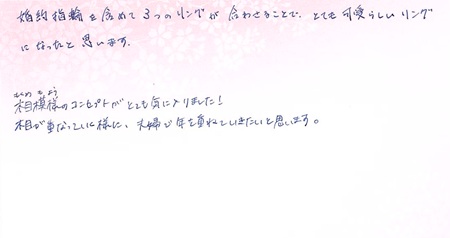 婚約指輪を含めて3つのリングが合わさることで、とても可愛らしいリング
になったと思います。
もくめもよう
木目模様のコンセプトがとても気に入りました!
木目が重なっていく様に、夫婦で年を重ねていきたいと思います。